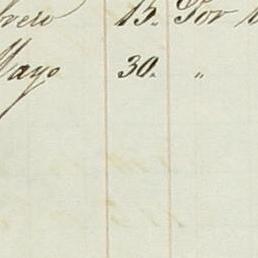 brero 15. Por
Mayo 30. "